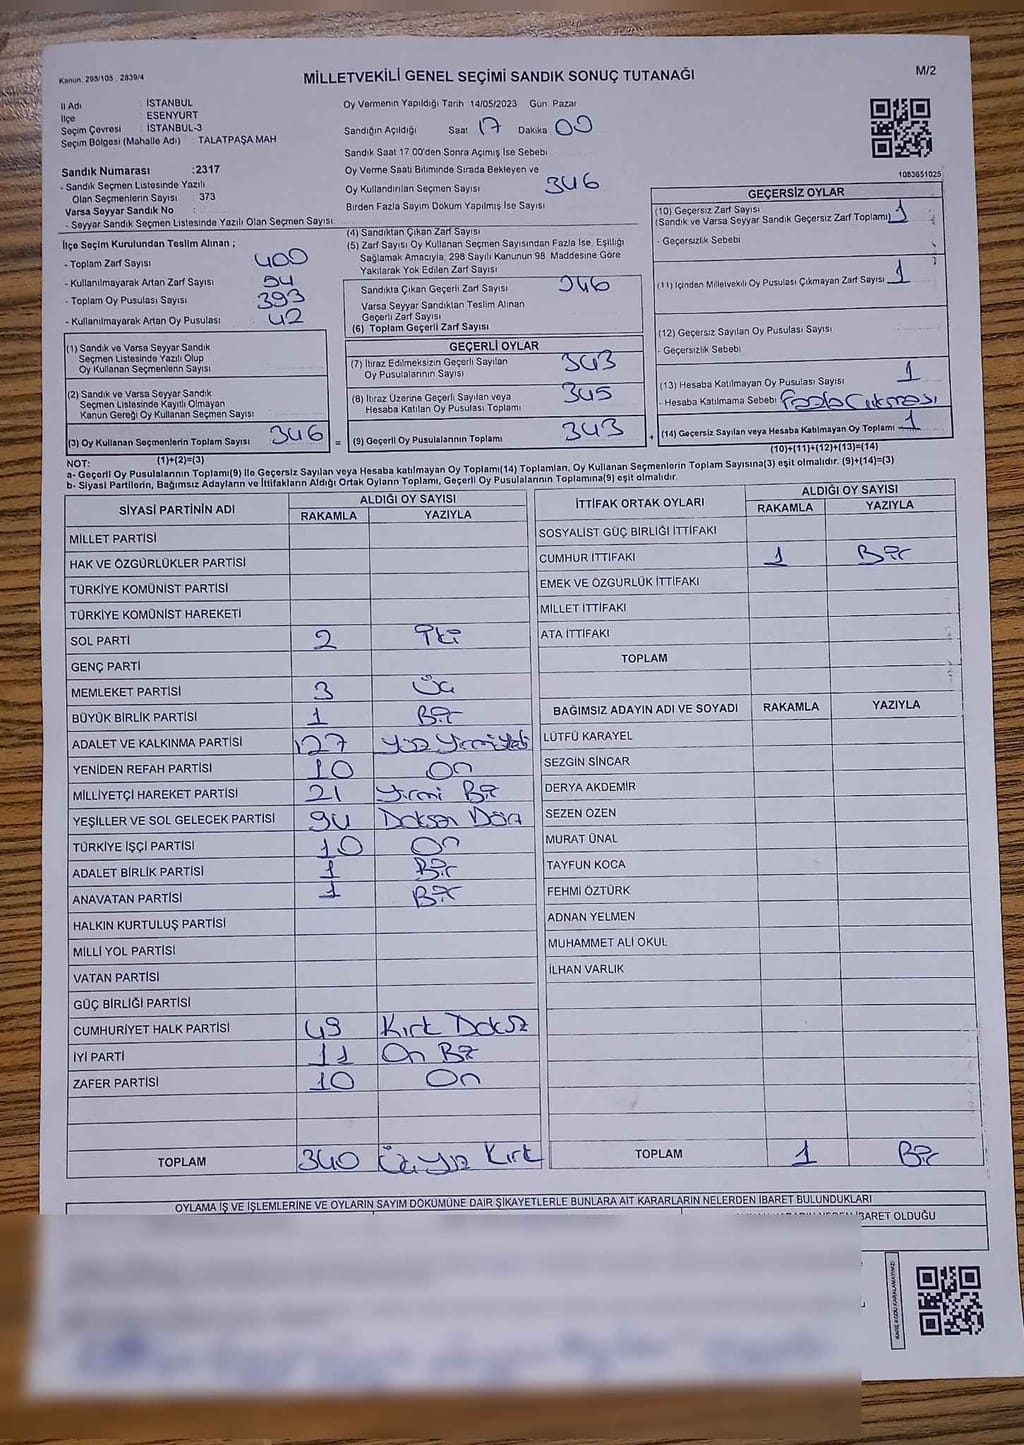 Kanun: 298/105 2839/4
MİLLETVEKİLİ GENEL SEÇİMİ SANDIK SONUÇ TUTANAĞI
M/2
İl Adı : İSTANBUL
İlçe : ESENYURT
Seçim Çevresi : İSTANBUL-3
Seçim Bölgesi (Mahalle Adı) : TALATPAŞA MAH
Oy Vermenin Yapıldığı Tarih 14/05/2023 Gün Pazar
Sandığın Açıldığı Saat 17 Dakika 00
Sandık Saat 17 00'den Sonra Açımış İse Sebebi
Oy Verme Saati Bitiminde Sırada Bekleyen ve
Oy Kullandırılan Seçmen Sayısı 346
Birden Fazla Sayım Döküm Yapılmış İse Sayısı
Sandık Numarası :2317
- Sandık Seçmen Listesinde Yazılı
Olan Seçmenlerin Sayısı 373
Varsa Seyyar Sandık No :
- Seyyar Sandık Seçmen Listesinde Yazılı Olan Seçmen Sayısı
İlçe Seçim Kurulundan Teslim Alınan ;
- Toplam Zarf Sayısı 400
- Kullanılmayarak Artan Zarf Sayısı 54
- Toplam Oy Pusulası Sayısı 393
- Kullanılmayarak Artan Oy Pusulası 42
(1) Sandık ve Varsa Seyyar Sandık
Seçmen Listesinde Yazılı Olup
Oy Kullanan Seçmenlerin Sayısı
(2) Sandık ve Varsa Seyyar Sandık
Seçmen Listesinde Kayıtlı Olmayan
Kanun Gereği Oy Kullanan Seçmen Sayısı
(3) Oy Kullanan Seçmenlerin Toplam Sayısı 346 =
(1)+(2)=(3)
(4) Sandıktan Çıkan Zarf Sayısı
(5) Zarf Sayısı Oy Kullanan Seçmen Sayısından Fazla İse, Eşitliği
Sağlamak Amacıyla, 298 Sayılı Kanunun 98 Maddesine Göre
Yakılarak Yok Edilen Zarf Sayısı
Sandıkta Çıkan Geçerli Zarf Sayısı 346
Varsa Seyyar Sandıktan Teslim Alınan
Geçerli Zarf Sayısı
(6) Toplam Geçerli Zarf Sayısı
GEÇERLİ OYLAR
(7) İtiraz Edilmeksizin Geçerli Sayılan
Oy Pusulalarının Sayısı 343
(8) İtiraz Üzerine Geçerli Sayılan veya
Hesaba Katılan Oy Pusulası Toplamı 345
(9) Geçerli Oy Pusulalarının Toplamı 343 +
1083651025
GEÇERSİZ OYLAR
(10) Geçersiz Zarf Sayısı
(Sandık ve Varsa Seyyar Sandık Geçersiz Zarf Toplamı) 1
- Geçersizlik Sebebi
(11) İçinden Milletvekili Oy Pusulası Çıkmayan Zarf Sayısı 1
(12) Geçersiz Sayılan Oy Pusulası Sayısı
- Geçersizlik Sebebi
(13) Hesaba Katılmayan Oy Pusulası Sayısı 1
- Hesaba Katılmama Sebebi Fazla Çıkması
(14) Geçersiz Sayılan veya Hesaba Katılmayan Oy Toplamı 1
(10)+(11)+(12)+(13)=(14)
NOT:
a- Geçerli Oy Pusulalarının Toplamı(9) ile Geçersiz Sayılan veya Hesaba katılmayan Oy Toplamı(14) Toplamları, Oy Kullanan Seçmenlerin Toplam Sayısına(3) eşit olmalıdır. (9)+(14)=(3)
b- Siyasi Partilerin, Bağımsız Adayların ve İttifakların Aldığı Ortak Oyların Toplamı, Geçerli Oy Pusulalarının Toplamına(9) eşit olmalıdır
SİYASİ PARTİNİN ADI ALDIĞI OY SAYISI
RAKAMLA YAZIYLA
MİLLET PARTİSİ
HAK VE ÖZGÜRLÜKLER PARTİSİ
TÜRKİYE KOMÜNİST PARTİSİ
TÜRKİYE KOMÜNİST HAREKETİ
SOL PARTİ 2 İki
GENÇ PARTİ
MEMLEKET PARTİSİ 3 Üç
BÜYÜK BİRLİK PARTİSİ 1 Bir
ADALET VE KALKINMA PARTİSİ 127 Yüz Yirmi Yedi
YENİDEN REFAH PARTİSİ 10 On
MİLLİYETÇİ HAREKET PARTİSİ 21 Yirmi Bir
YEŞİLLER VE SOL GELECEK PARTİSİ 94 Doksan Dört
TÜRKİYE İŞÇİ PARTİSİ 10 On
ADALET BİRLİK PARTİSİ 1 Bir
ANAVATAN PARTİSİ 1 Bir
HALKIN KURTULUŞ PARTİSİ
MİLLİ YOL PARTİSİ
VATAN PARTİSİ
GÜÇ BİRLİĞİ PARTİSİ
CUMHURİYET HALK PARTİSİ 49 Kırk Dokuz
İYİ PARTİ 11 On Bir
ZAFER PARTİSİ 10 On
TOPLAM 340 Üçyüz Kırk
İTTİFAK ORTAK OYLARI ALDIĞI OY SAYISI
RAKAMLA YAZIYLA
SOSYALİST GÜÇ BİRLİĞİ İTTİFAKI
CUMHUR İTTİFAKI 1 Bir
EMEK VE ÖZGÜRLÜK İTTİFAKI
MİLLET İTTİFAKI
ATA İTTİFAKI
TOPLAM
BAĞIMSIZ ADAYIN ADI VE SOYADI RAKAMLA YAZIYLA
LÜTFÜ KARAYEL
SEZGİN SİNCAR
DERYA AKDEMİR
SEZEN ÖZEN
MURAT ÜNAL
TAYFUN KOCA
FEHMİ ÖZTÜRK
ADNAN YELMEN
MUHAMMET ALİ OKUL
İLHAN VARLIK
TOPLAM 1 Bir
OYLAMA İŞ VE İŞLEMLERİNE VE OYLARIN SAYIM DÖKÜMÜNE DAİR ŞİKAYETLERLE BUNLARA AİT KARARLARIN NELERDEN İBARET BULUNDUKLARI
İBARET OLDUĞU
KARE KODU KARALAMAYINIZ!